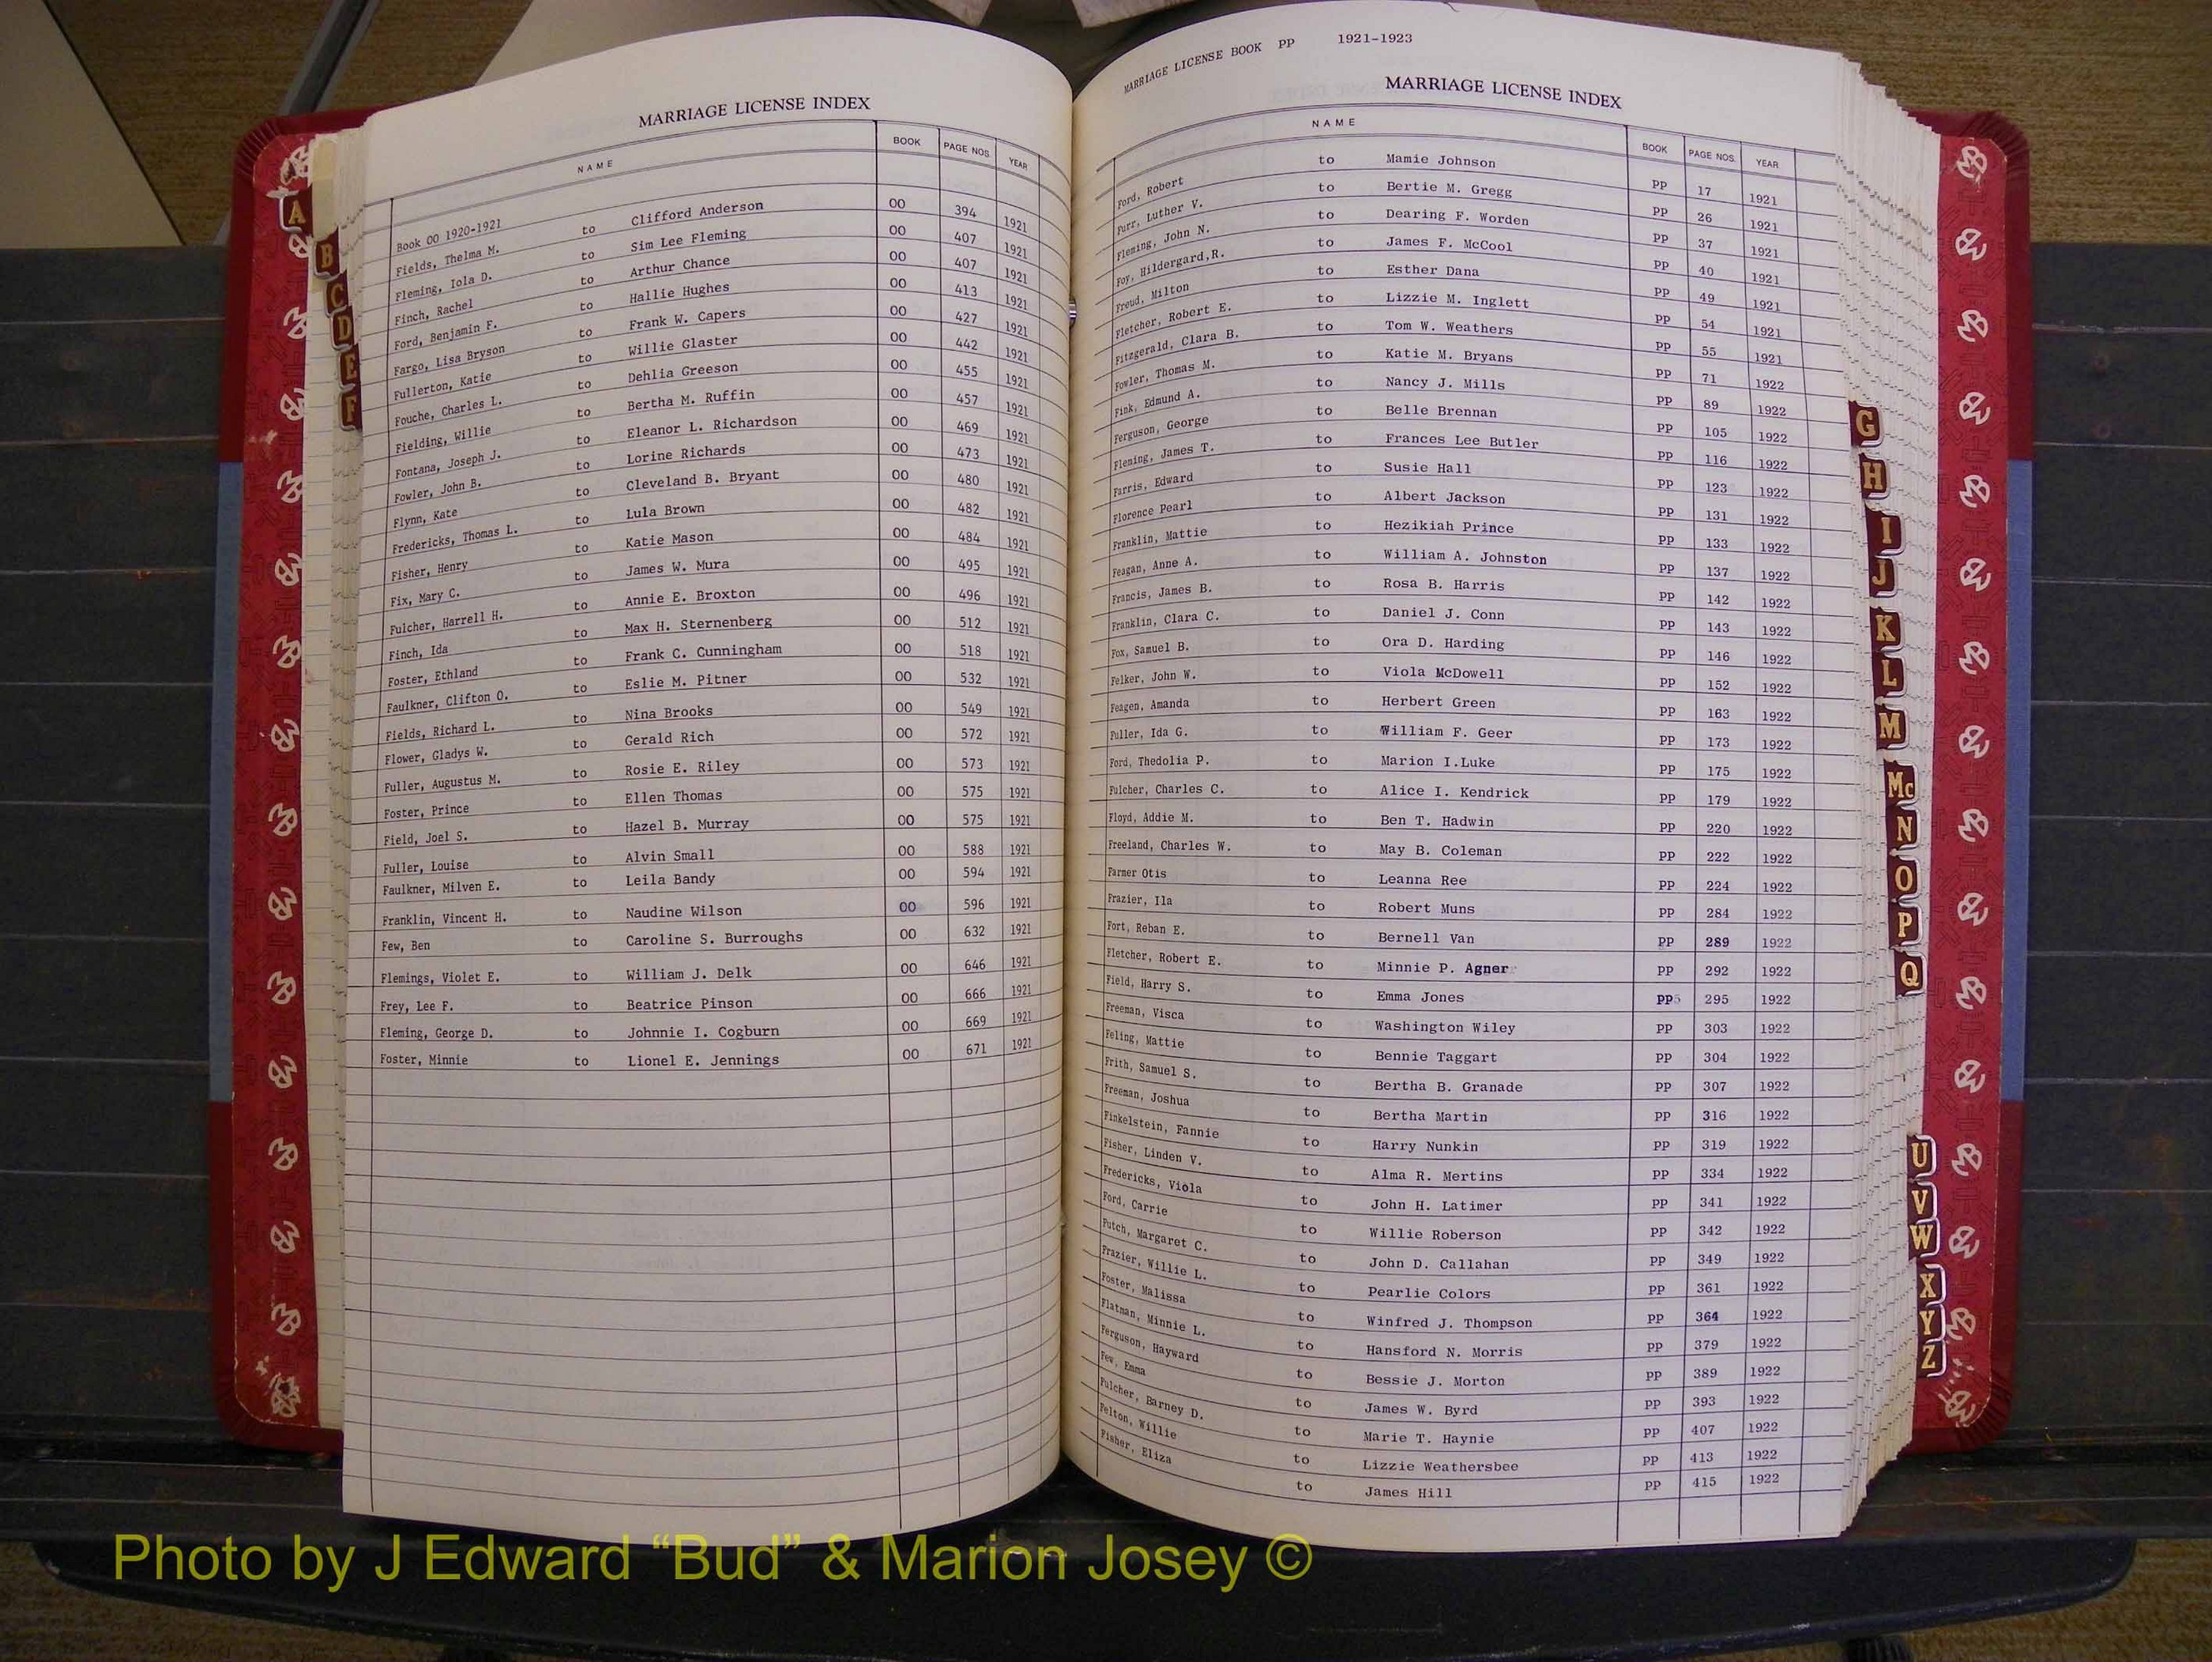 MARRIAGE LICENSE INDEX
NAME BOOK PAGE NOS. YEAR
Book OO 1920-1921
Fields, Thelma M. to Clifford Anderson OO 394 1921
Fleming, Iola D. to Sim Lee Fleming OO 407 1921
Finch, Rachel to Arthur Chance OO 407 1921
Ford, Benjamin F. to Hallie Hughes OO 413 1921
Fargo, Lisa Bryson to Frank W. Capers OO 427 1921
Fullerton, Katie to Willie Glaster OO 442 1921
Fouche, Charles L. to Dehlia Greeson OO 455 1921
Fielding, Willie to Bertha M. Ruffin OO 457 1921
Fontana, Joseph J. to Eleanor L. Richardson OO 469 1921
Fowler, John B. to Lorine Richards OO 473 1921
Flynn, Kate to Cleveland B. Bryant OO 480 1921
Fredericks, Thomas L. to Lula Brown OO 482 1921
Fisher, Henry to Katie Mason OO 484 1921
Fix, Mary C. to James W. Mura OO 495 1921
Fulcher, Harrell H. to Annie E. Broxton OO 496 1921
Finch, Ida to Max H. Sternenberg OO 512 1921
Foster, Ethland to Frank C. Cunningham OO 518 1921
Faulkner, Clifton O. to Eslie M. Pitner OO 532 1921
Fields, Richard L. to Nina Brooks OO 549 1921
Flower, Gladys W. to Gerald Rich OO 572 1921
Fuller, Augustus M. to Rosie E. Riley OO 573 1921
Foster, Prince to Ellen Thomas OO 575 1921
Field, Joel S. to Hazel B. Murray OO 575 1921
Fuller, Louise to Alvin Small OO 588 1921
Faulkner, Milven E. to Leila Bandy OO 594 1921
Franklin, Vincent H. to Naudine Wilson OO 596 1921
Few, Ben to Caroline S. Burroughs OO 632 1921
Flemings, Violet E. to William J. Delk OO 646 1921
Frey, Lee F. to Beatrice Pinson OO 666 1921
Fleming, George D. to Johnnie I. Cogburn OO 669 1921
Foster, Minnie to Lionel E. Jennings OO 671 1921
A
B
C
D
E
F
MARRIAGE LICENSE BOOK PP 1921-1923
MARRIAGE LICENSE INDEX
NAME BOOK PAGE NOS. YEAR
Ford, Robert to Mamie Johnson PP 17 1921
Furr, Luther V. to Bertie M. Gregg PP 26 1921
Fleming, John N. to Dearing F. Worden PP 37 1921
Foy, Hildergard,R. to James F. McCool PP 40 1921
Freud, Milton to Esther Dana PP 49 1921
Fletcher, Robert E. to Lizzie M. Inglett PP 54 1921
Fitzgerald, Clara B. to Tom W. Weathers PP 55 1921
Fowler, Thomas M. to Katie M. Bryans PP 71 1922
Fink, Edmund A. to Nancy J. Mills PP 89 1922
Ferguson, George to Belle Brennan PP 105 1922
Fleming, James T. to Frances Lee Butler PP 116 1922
Farris, Edward to Susie Hall PP 123 1922
Florence Pearl to Albert Jackson PP 131 1922
Franklin, Mattie to Hezikiah Prince PP 133 1922
Feagan, Anne A. to William A. Johnston PP 137 1922
Francis, James B. to Rosa B. Harris PP 142 1922
Franklin, Clara C. to Daniel J. Conn PP 143 1922
Fox, Samuel B. to Ora D. Harding PP 146 1922
Felker, John W. to Viola McDowell PP 152 1922
Feagen, Amanda to Herbert Green PP 163 1922
Fuller, Ida G. to William F. Geer PP 173 1922
Ford, Thedolia P. to Marion I.Luke PP 175 1922
Fulcher, Charles C. to Alice I. Kendrick PP 179 1922
Floyd, Addie M. to Ben T. Hadwin PP 220 1922
Freeland, Charles W. to May B. Coleman PP 222 1922
Farmer Otis to Leanna Ree PP 224 1922
Frazier, Ila to Robert Muns PP 284 1922
Fort, Reban E. to Bernell Van PP 289 1922
Fletcher, Robert E. to Minnie P. Agner PP 292 1922
Field, Harry S. to Emma Jones PP 295 1922
Freeman, Visca to Washington Wiley PP 303 1922
Feling, Mattie to Bennie Taggart PP 304 1922
Frith, Samuel S. to Bertha B. Granade PP 307 1922
Freeman, Joshua to Bertha Martin PP 316 1922
Finkelstein, Fannie to Harry Nunkin PP 319 1922
Fisher, Linden V. to Alma R. Mertins PP 334 1922
Fredericks, Viola to John H. Latimer PP 341 1922
Ford, Carrie to Willie Roberson PP 342 1922
Futch, Margaret C. to John D. Callahan PP 349 1922
Frazier, Willie L. to Pearlie Colors PP 361 1922
Foster, Malissa to Winfred J. Thompson PP 364 1922
Flatman, Minnie L. to Hansford N. Morris PP 379 1922
Ferguson, Hayward to Bessie J. Morton PP 389 1922
Few, Emma to James W. Byrd PP 393 1922
Fulcher, Barney D. to Marie T. Haynie PP 407 1922
Felton, Willie to Lizzie Weathersbee PP 413 1922
Fisher, Eliza to James Hill PP 415 1922
G
H
I
J
K
L
M
Mc
N
O
P
Q
U
V
W
X
Y
Z
Photo by J Edward “Bud” & Marion Josey ©